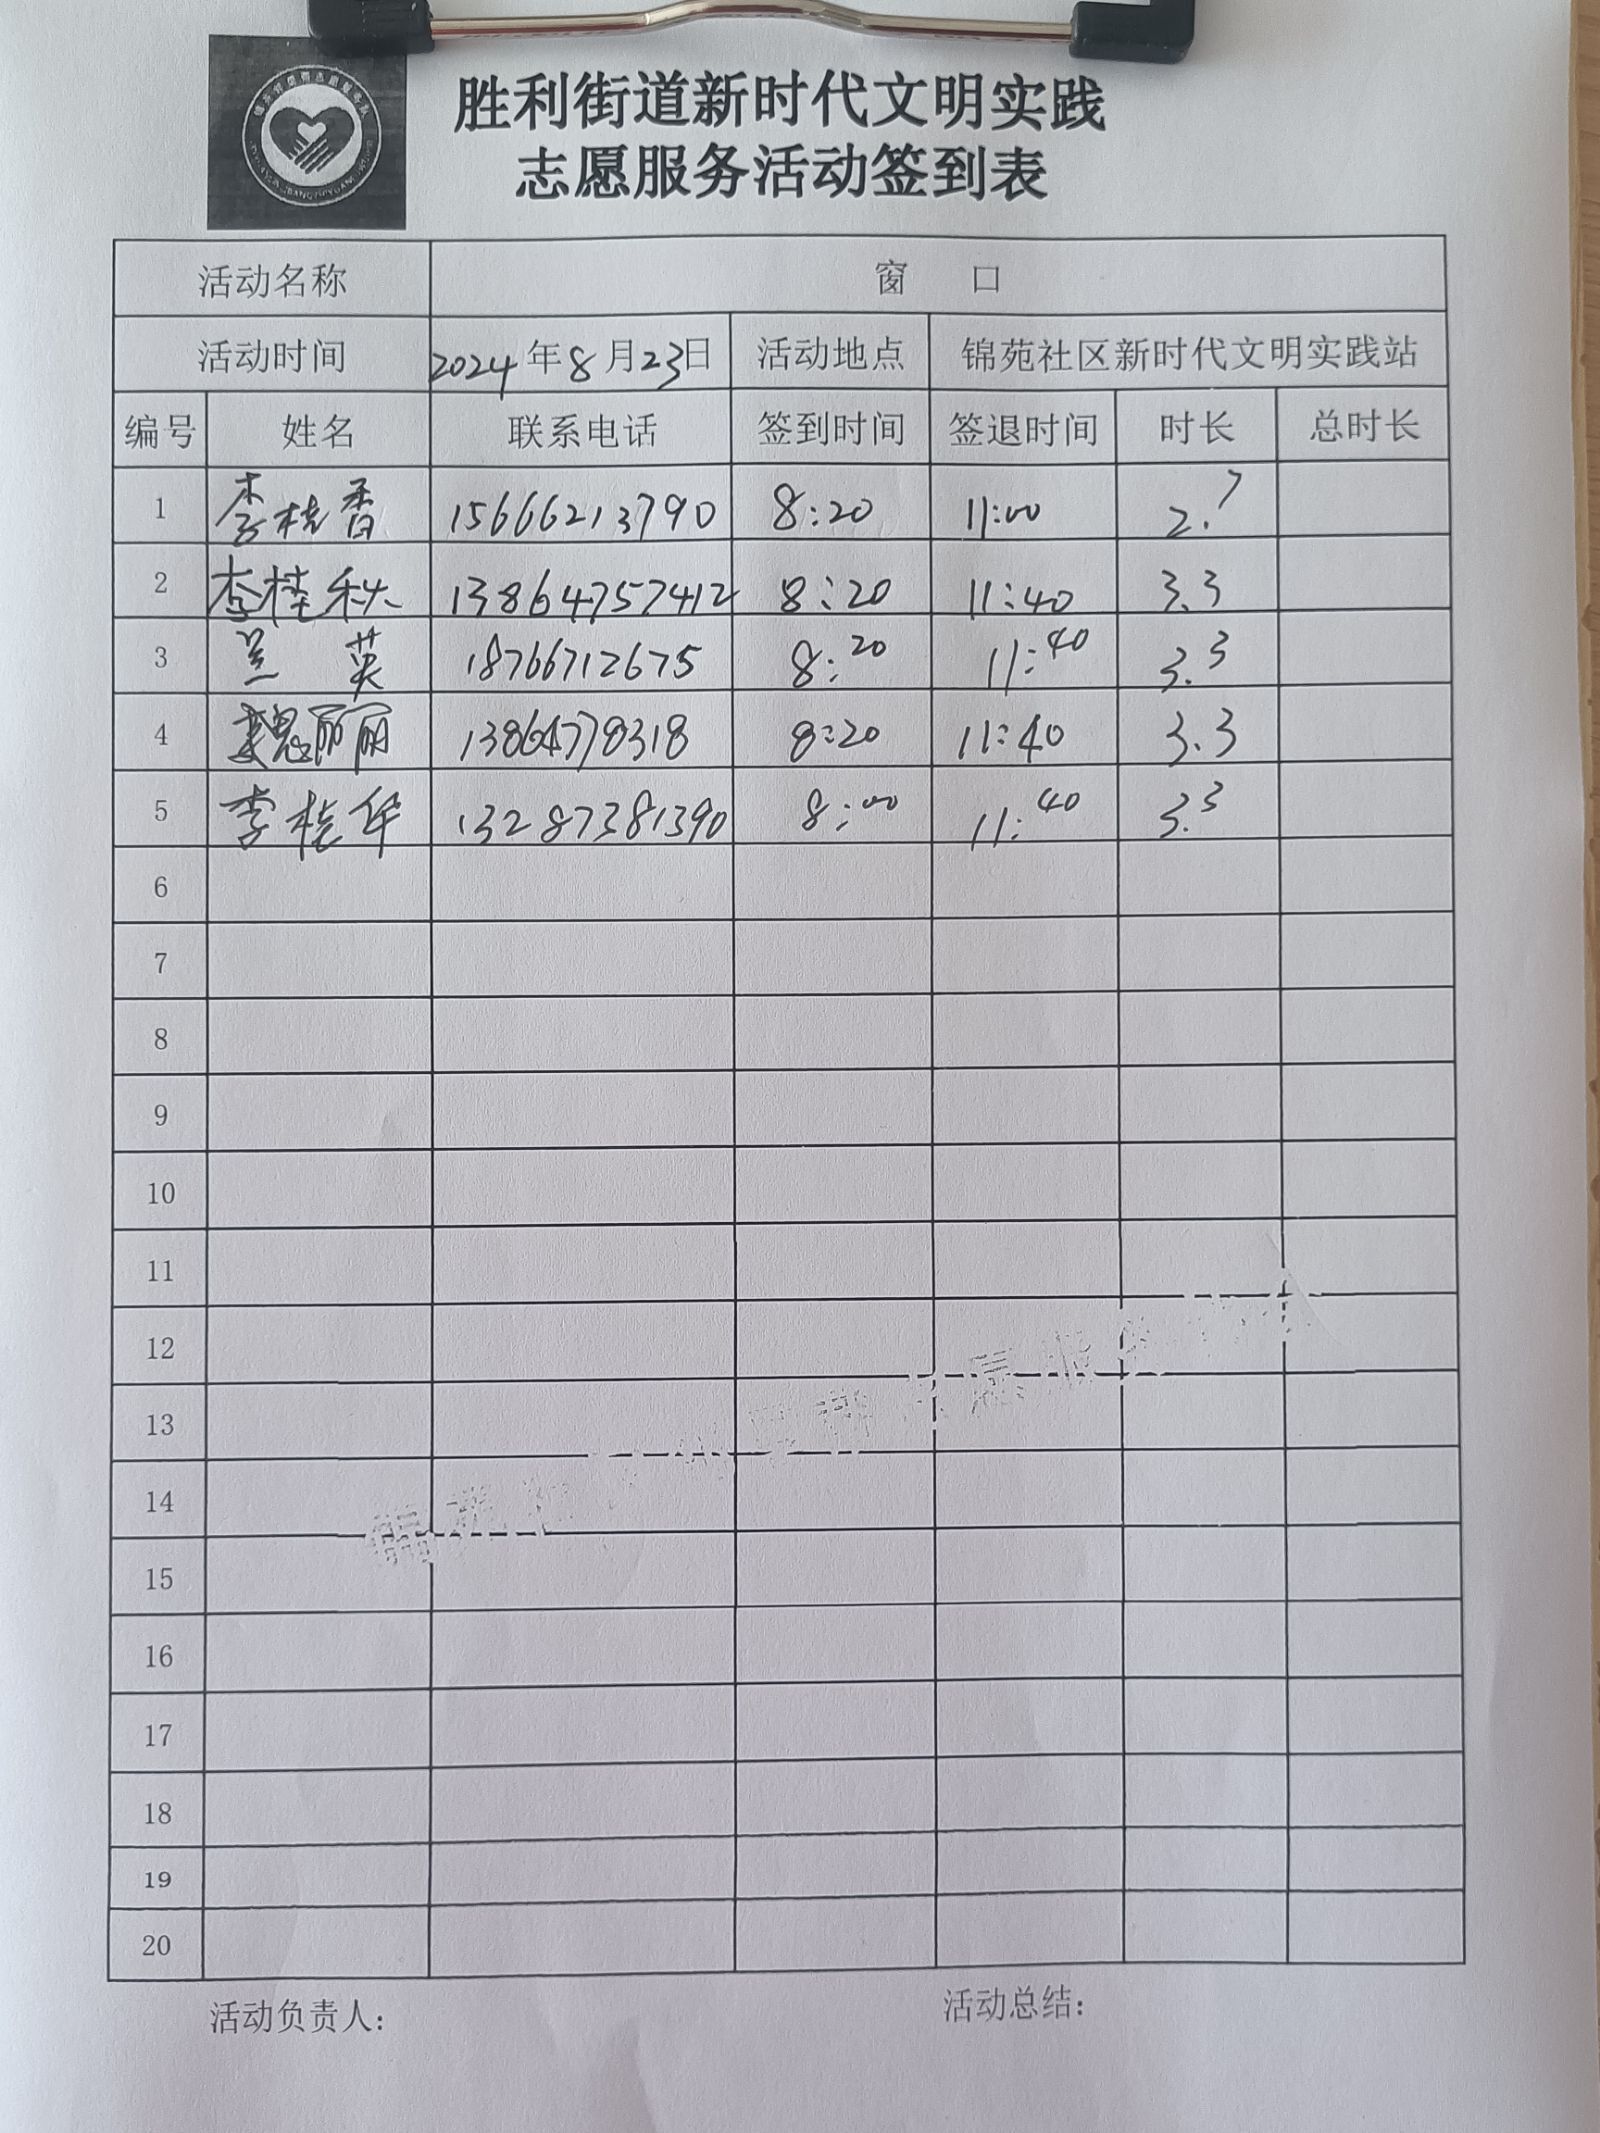 胜利街道新时代文明实践
志愿服务活动签到表
活动名称 窗 口
活动时间 2024年8月23日 活动地点 锦苑社区新时代文明实践站
编号 姓名 联系电话 签到时间 签退时间 时长 总时长
1 李桂香 15666213790 8:20 11:00 2.7
2 李桂秋 13864757412 8:20 11:40 3.3
3 兰英 18766712675 8:20 11:40 3.3
4 魏丽丽 13864778318 8:20 11:40 3.3
5 李桂华 13287381390 8:00 11:40 3.3
6
7
8
9
10
11
12
13
14
15
16
17
18
19
20
活动负责人： 活动总结：